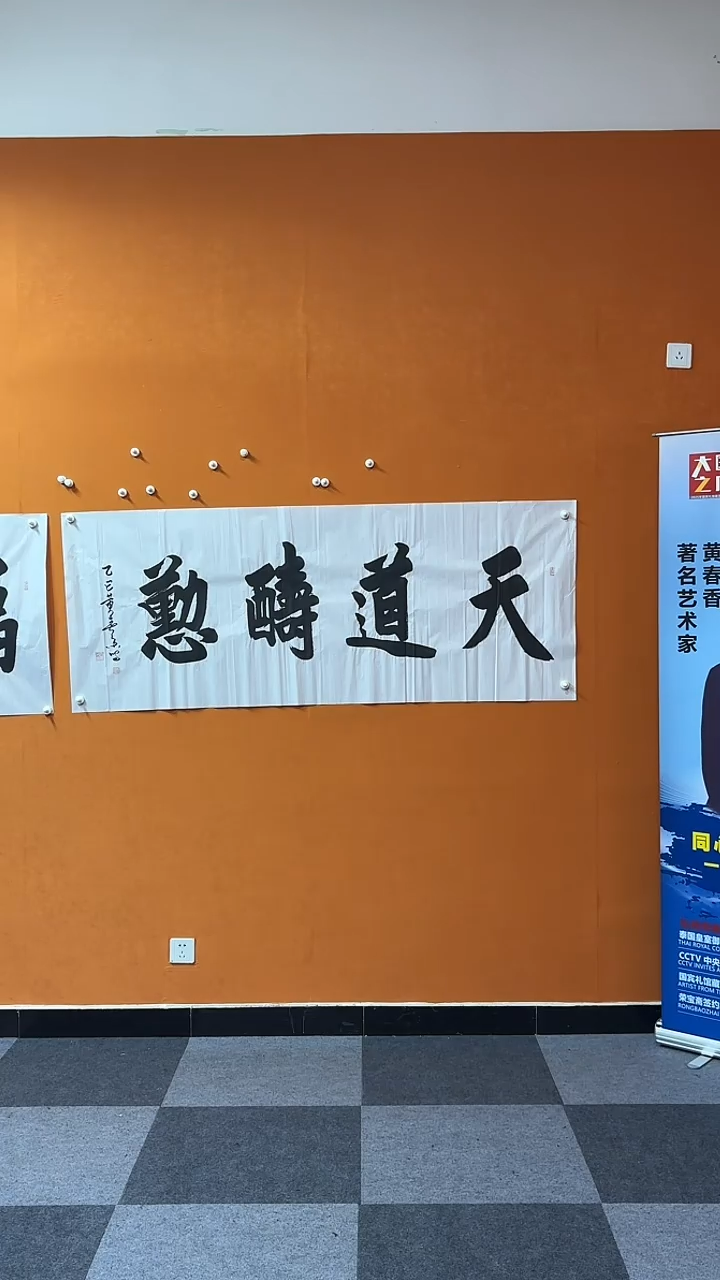 天道酬懃
乙巳黄春香书
大国
之
黄春香
著名艺术家
同心
一
泰国皇室御
THAI ROYAL CO
CCTV 中央
CCTV INVITES A
国宾礼馆藏
ARTIST FROM T
荣宝斋签约
RONGBAOZHAI
福